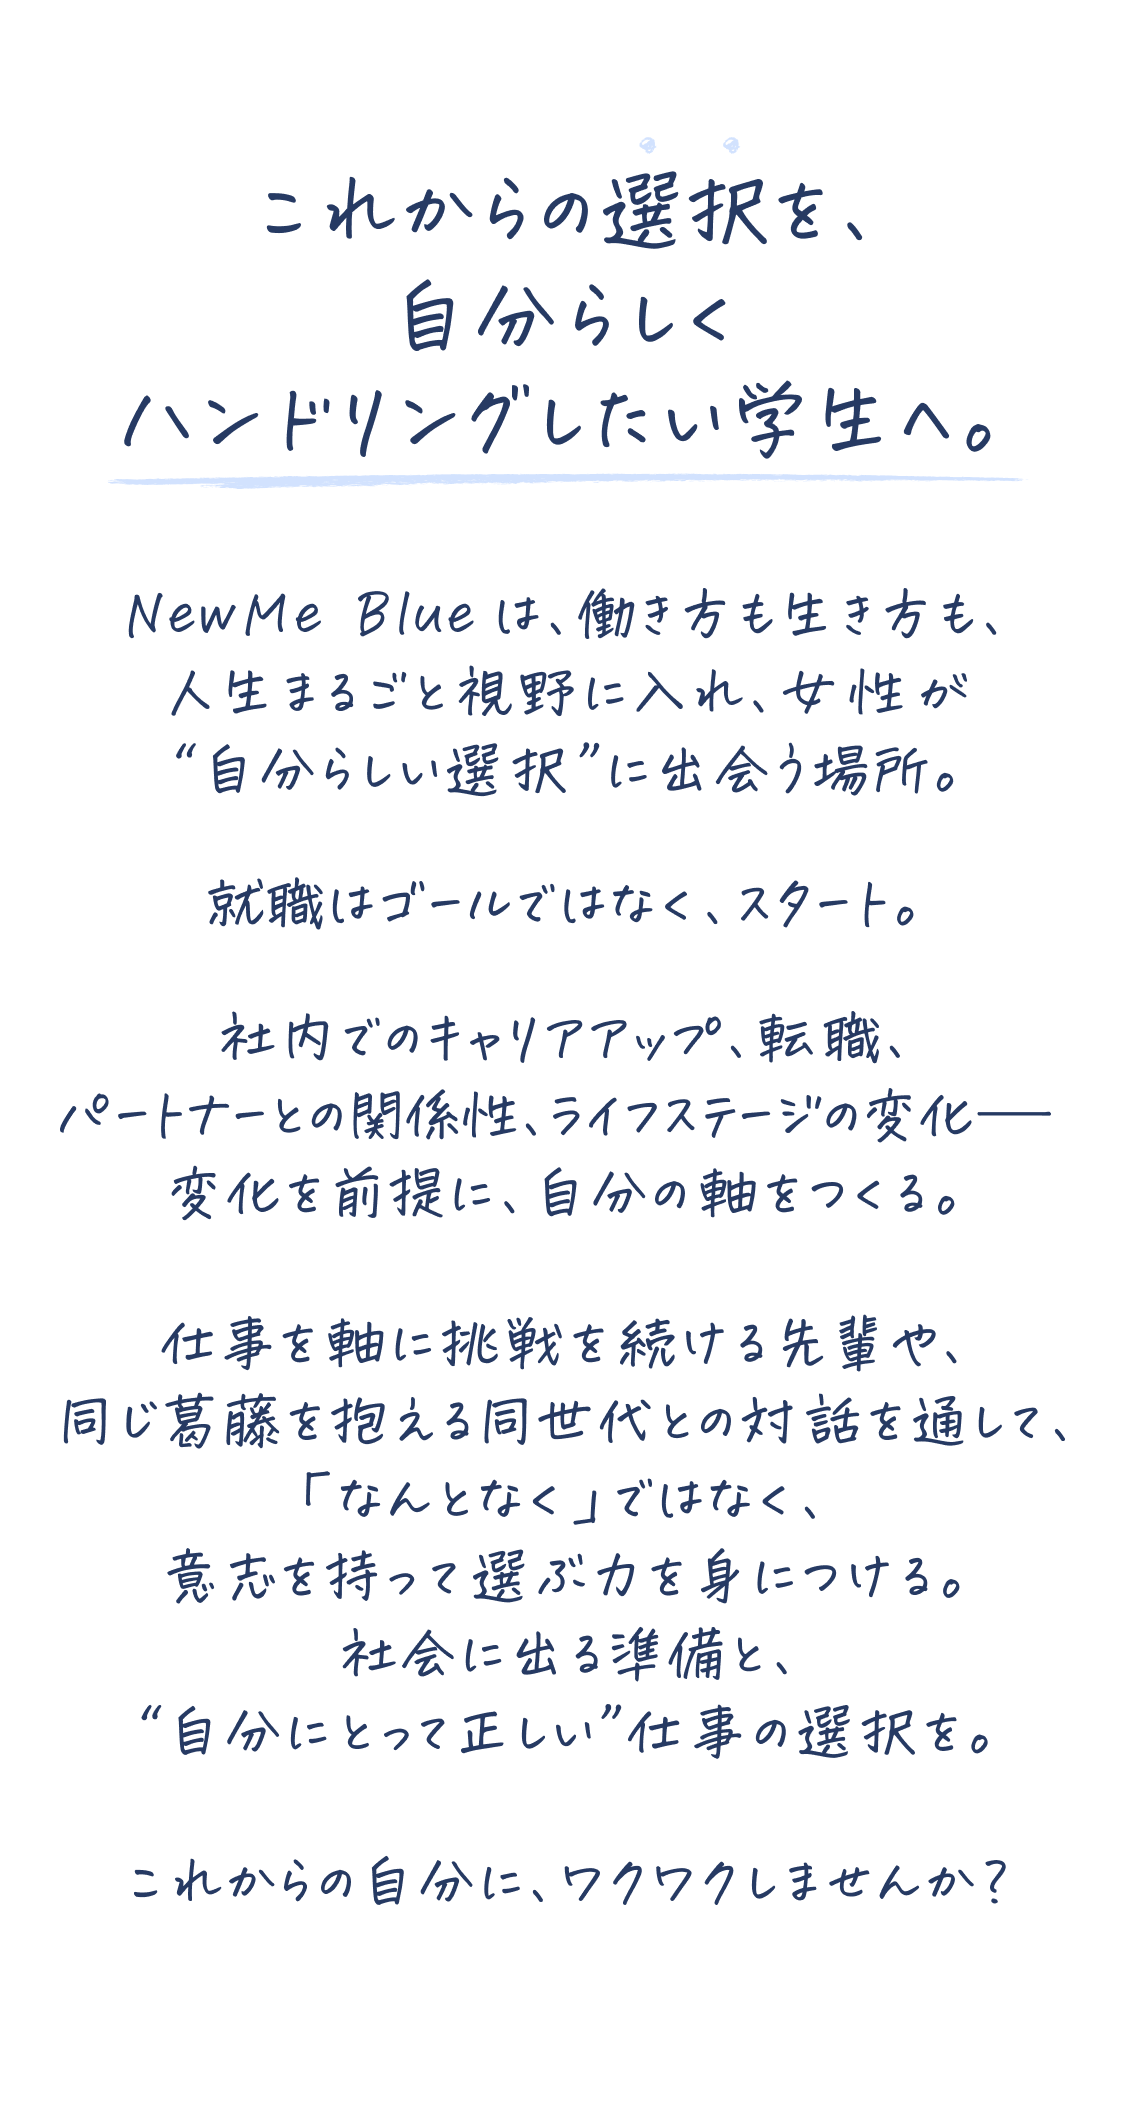 これからの選択を、
自分らしく
ハンドリングしたい学生へ。
NewMe Blue は、働き方も生き方も、
人生まるごと視野に入れ、女性が
“自分らしい選択”に出会う場所。
就職はゴールではなく、スタート。
社内でのキャリアアップ、転職、
パートナーとの関係性、ライフステージの変化──
変化を前提に、自分の軸をつくる。
仕事を軸に挑戦を続ける先輩や、
同じ葛藤を抱える同世代との対話を通して、
「なんとなく」ではなく、
意志を持って選ぶ力を身につける。
社会に出る準備と、
“自分にとって正しい”仕事の選択を。
これからの自分に、ワクワクしませんか?